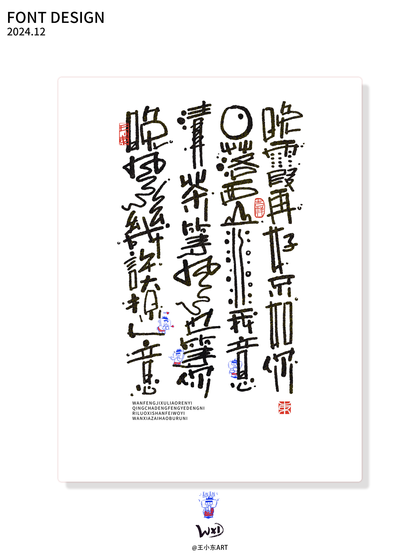 FONT DESIGN
2024.12
晚风幾許撩人意
清茶等风也等你
日落西山非我意
晚霞再好不如你
WANFENGJIXULIAORENYI
QINGCHADENGFENGYEDENGNI
RILUOXISHANFEIWOYI
WANXIAZAIHAOBURUNI
WXD
@王小东ART